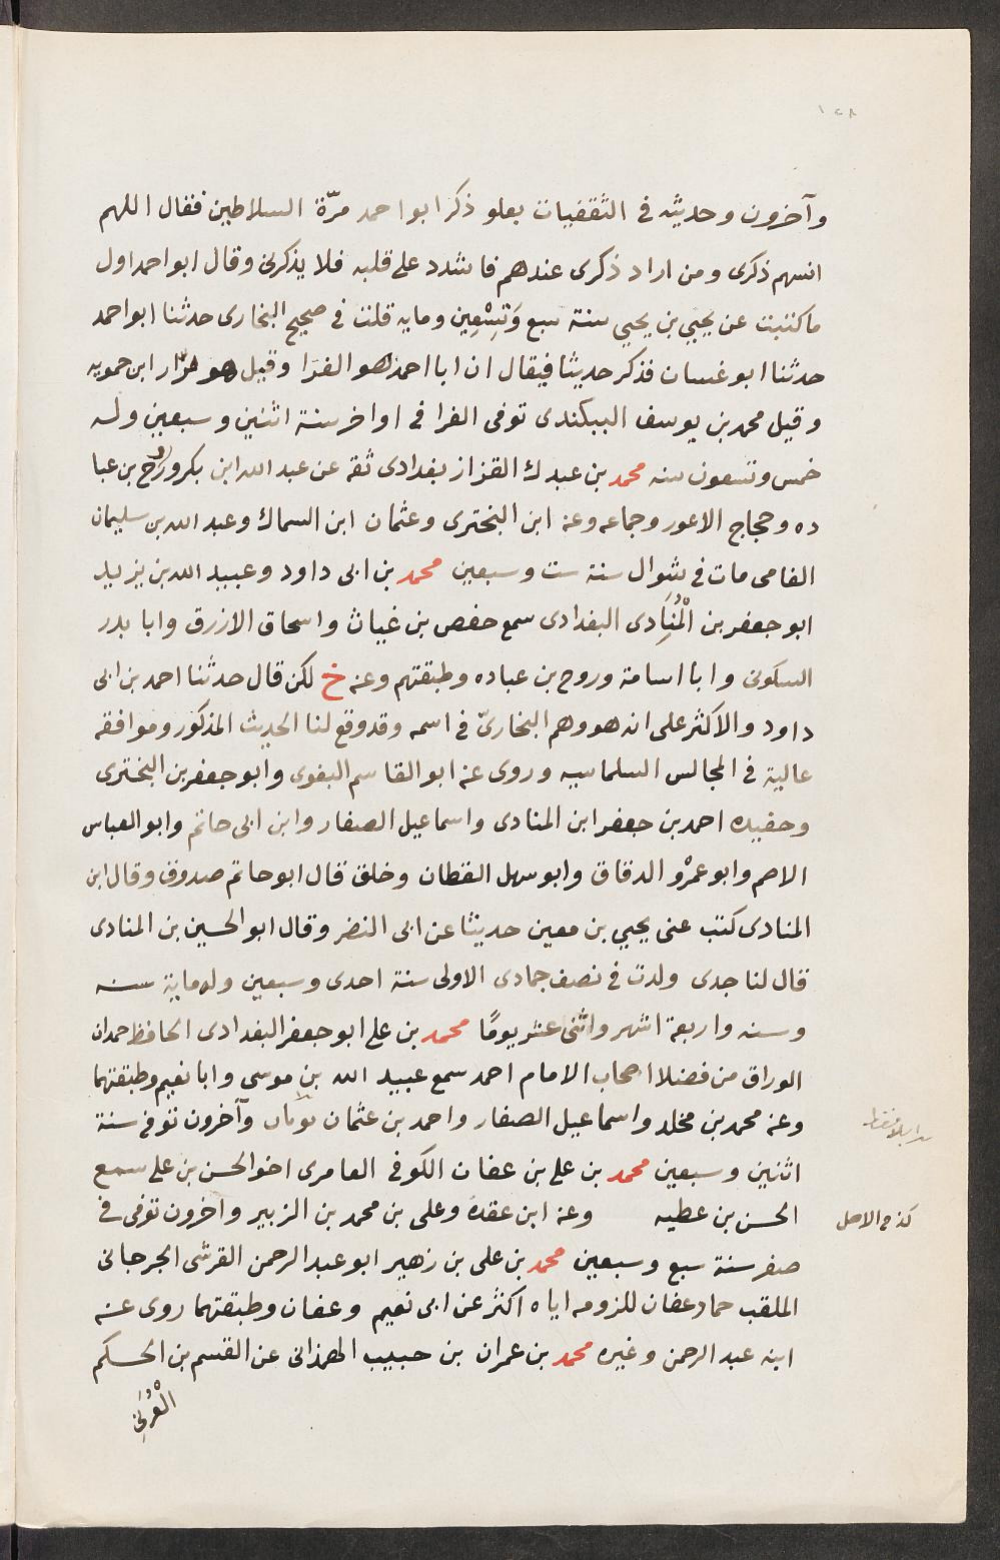 ١٢٨
وآخرون وحديثه فى الثقفيات بعلو ذكر ابو احمد مرّة السلاطين فقال اللهم
انسهم ذكرى ومن اراد ذكرى عندهم فاشدد على قلبه فلا يذكرنى وقال ابو احمد اول
ما كتبت عن يحيي بن يحيي سنة سبع وَتِسْعِين وما يه قلت فى صحيح البخارى حدثنا ابو احمد
حدثنا ابو غسان فذكر حديثا فيقال ان ابا احمد هو الفرا وقيل هو مرّار ابن حمويه
وقيل محمد بن يوسف البيكندى توفى الفرا فى اواخر سنة اثنين وسبعين وله
خمس وتسعون سنه محمد بن عبدك القزاز بغدادى ثقة عن عبد الله ابن بكر وروح بن عبا
ده وحجاج الاعور وجماعه وعنه ابن البخترى وعثمان ابن السماك وعبد الله بن سليمان
الفامى مات فى شوال سنة ست وسبعين محمد بن ابى داود وعبيد الله بن يزيد
ابو جعفر بن الْمُنَادِى البغدادى سمع حفص بن غياث واسحاق الازرق وابا بدر
السكونى وابا اسامة وروح بن عباده وطبقتهم وعنه خ لكن قال حدثنا احمد بن ابى
داود والاكثر على انه هو وهم البخارىّ فى اسمه وقد وقع لنا الحديث المذكور وموافقه
عالية فى المجالس السلماسيه وروى عنه ابو القاسم البغوى وابو جعفر بن البخترى
وحفيده احمد بن جعفر ابن المنادى واسماعيل الصفار وابن ابى حاتم وابو العباس
الاصم وابو عمْرو الدقاق وابو سهل القطان وخلق قال ابو حاتم صدوق وقال ابن
المنادى كتب عنى يحيي بن معين حديثا عن ابى النضر وقال ابو الحسين بن المنادى
قال لنا جدى ولدت فى نصف جمادى الاولى سنة احدى وسبعين وله ماية سنه
وسنه واربعة اشهر واثنى عشر يومًا محمد بن على ابو جعفر البغدادى الحافظ حمدان
الوراق من فضلا اصحاب الامام احمد سمع عبيد الله بن موسى وابا نعيم وطبقتهما
وعنه محمد بن مخلد واسماعيل الصفار واحمد بن عثمان وآخرون توفى سنة
اثنين وسبعين محمد بن على بن عفان الكوفى العامرى اخو الحسن بن على سمع
الحسن بن عطيه وعنه ابن عقدة وعلى بن محمد بن الزبير وآخرون توفى فى
كذا فى الاصل
صفر سنة سبع وسبعين محمد بن على بن زهير ابو عبد الرحمن القرشى الجرجانى
الملقب حماد عفان للزومه اياه اكثر عن ابى نعيم وعفان وطبقتهما روى عنه
ابنه عبد الرحمن وغيره محمد بن عمران بن حبيب الهمذانى عن القسم بن الحكم
الْعُرَنِى